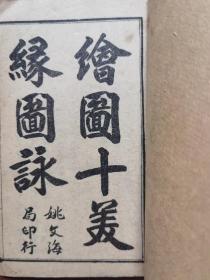 繪圖十美
緣圖詠
姚文海
局印行